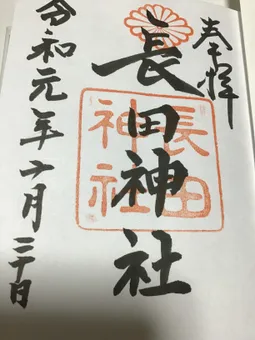 奉拝
長田神社
長田
神社
令和元年十月二十日